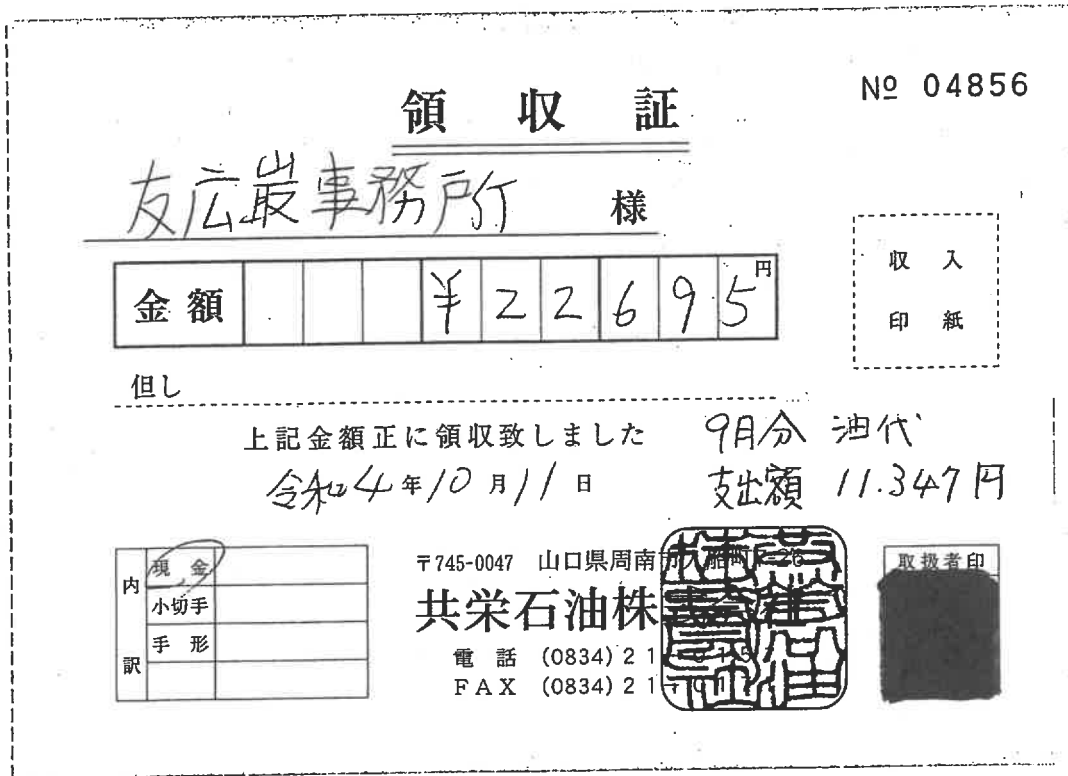 領収証
№ 04856
友広巌事務所 様
金額 ¥22695円
収入
印紙
但し
上記金額正に領収致しました
9月分 油代
令和4年10月11日
支出額 11.347円
内訳
現金
小切手
手形
〒745-0047 山口県周南市
共栄石油株式会社
電話 (0834)21
FAX (0834)21
取扱者印